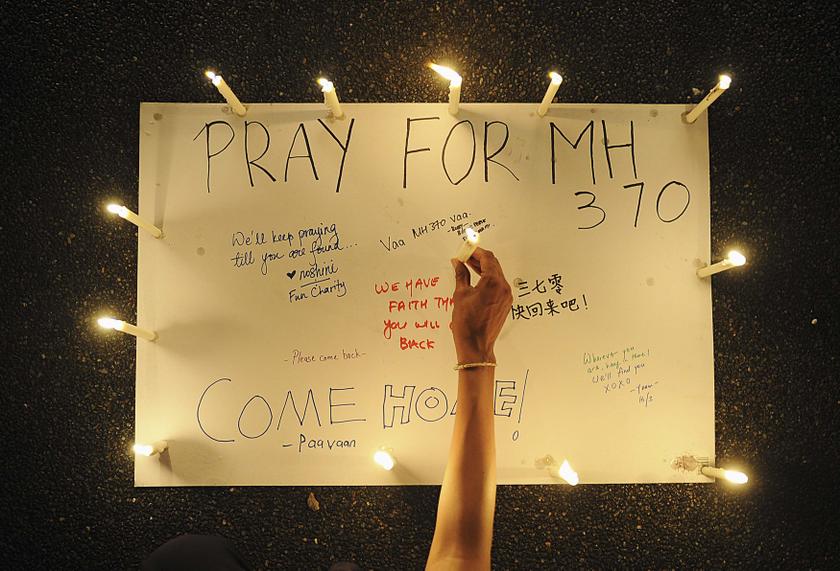 PRAY FOR MH
370
We'll keep praying
till you are found...
♥ noshini
Fun Charity
Vaa MH370 Vaa.
WE HAVE
FAITH
you will
BACK
三七零
快回来吧!
- Please come back -
Wherever you
are, hang in there!
We'll find you
XOXO
COME HOME!
- Paavaan